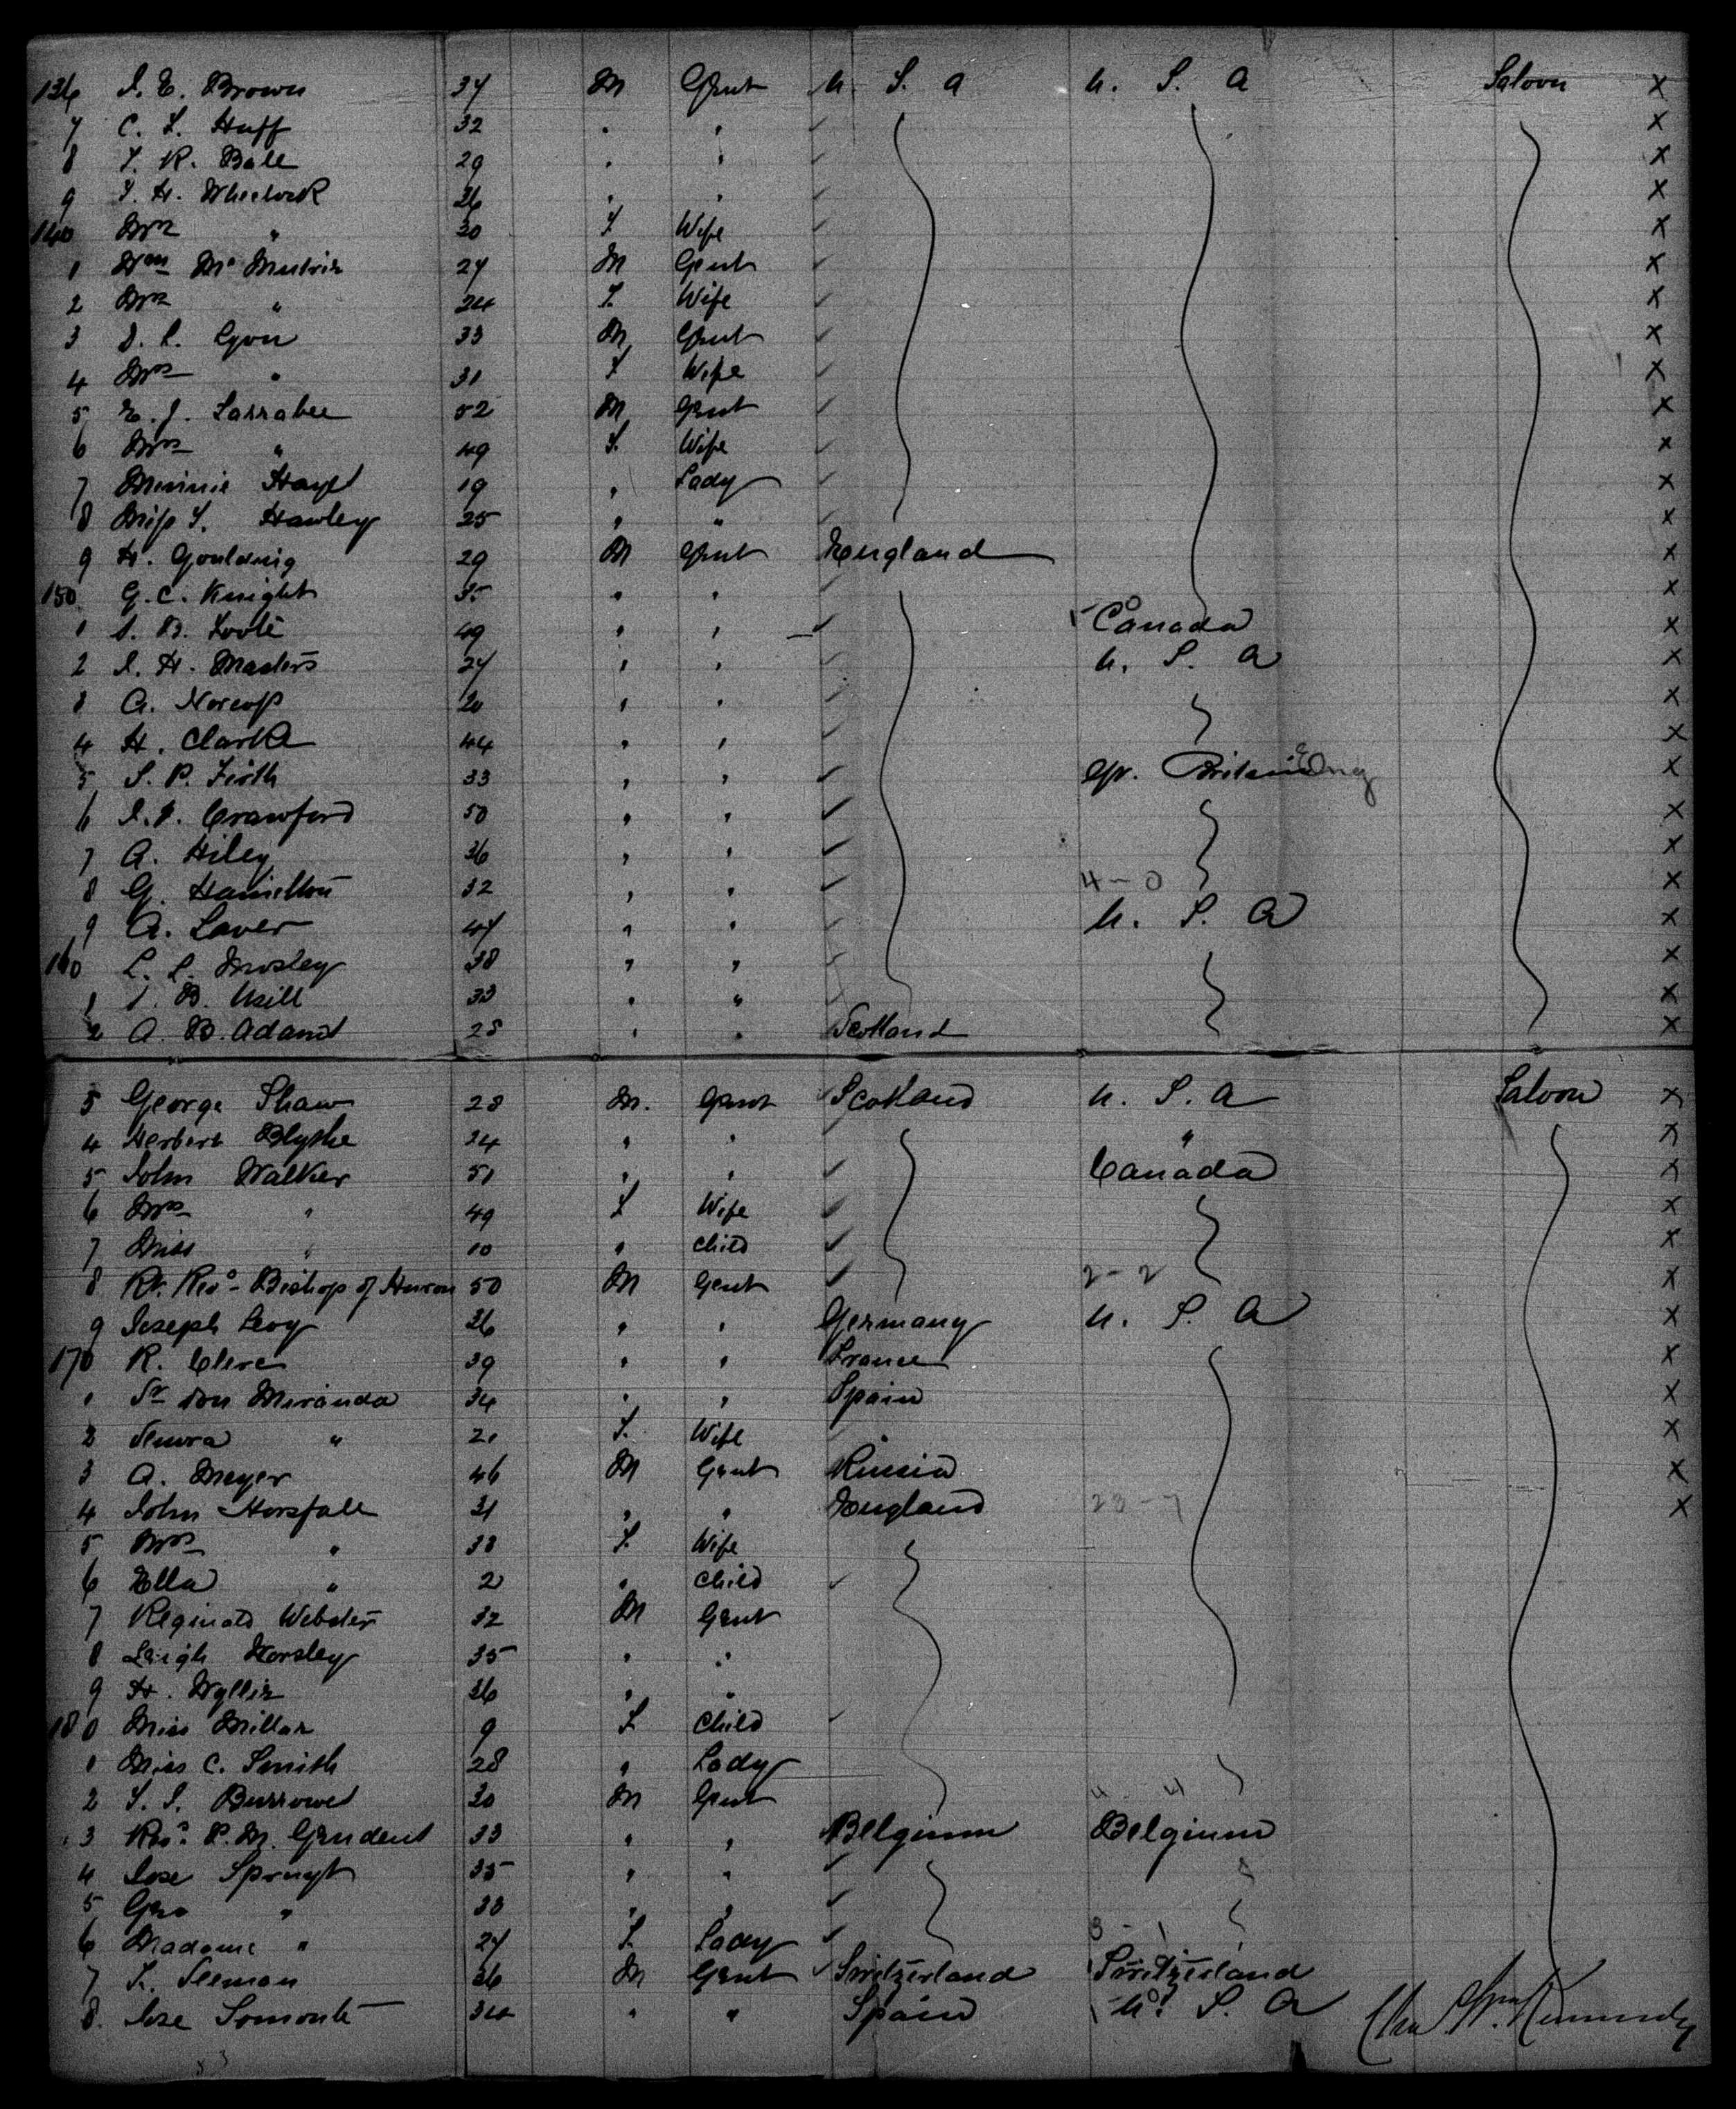 136 J. E. Brown 34 M Gent U. S. A U. S. A Saloon X
7 C. L. Huff 32 " " X
8 F. R. Bale 29 " " X
9 F. H. Wheelock 36 " " X
140 Mrs " 30 F Wife X
1 Wm Mc 27 M Gent X
2 Mrs " 24 F. Wife X
3 Lyon 33 M Gent X
4 Mrs " 31 F Wife X
5 E. J. Larrabee 52 M Gent X
6 Mrs " 49 F. Wife X
7 Minnie 19 " Lady X
8 Miss F. Hawley 25 " " X
9 H. Goulding 29 M Gent England X
150 G. C. Knight 35 " " X
1 B. Foote 49 " " Canada X
2 J. H. Masters 27 " " U. S. A X
3 A. Norcop 20 " " X
4 H. Clarke 44 " " X
5 S. P. Firth 33 " " Gr. Britain Eng X
6 Crawford 50 " " X
7 A. Hiley 36 " " X
8 G. Hamilton 32 " " 4 - 0 X
9 A. Laver 47 " " U. S. A X
160 L. L. Mosley 38 " " X
1 B. Usill 33 " " X
2 A. B. Adams 28 " " Scotland X
3 George Shaw 28 M. Gent Scotland U. S. A Saloon X
4 Herbert Blythe 24 " " " X
5 John Walker 51 " " Canada X
6 Mrs " 49 F Wife X
7 Miss " 10 " Child X
8 Rt. Revd - Bishop of Huron 50 M Gent 2 - 2 X
9 Joseph Levy 36 " " Germany U. S. A X
170 R. Clere 39 " " France X
1 Sr Don Miranda 34 " " Spain X
2 Senora " 21 F. Wife " X
3 A. Meyer 46 M Gent Russia X
4 John Horsfall 31 " " England 23 - 7 X
5 Mrs " 33 F. Wife
6 Ella " 2 " Child
7 Reginald Webster 32 M Gent
8 Leigh Horsley 35 " "
9 H. Wyllie 36 " "
180 Miss Millar 9 F Child
1 Miss C. Smith 28 " Lady
2 Burrowes 30 M Gent
3 Revd P. M. 33 " " Belgium Belgium
4 Jose Spruyt 35 " "
5 Geo " 33 " "
6 Madame " 27 F. Lady 3 - 1
7 Seeman 36 M Gent Switzerland Switzerland
8. Jose Somonte 34 " " Spain U. S. A